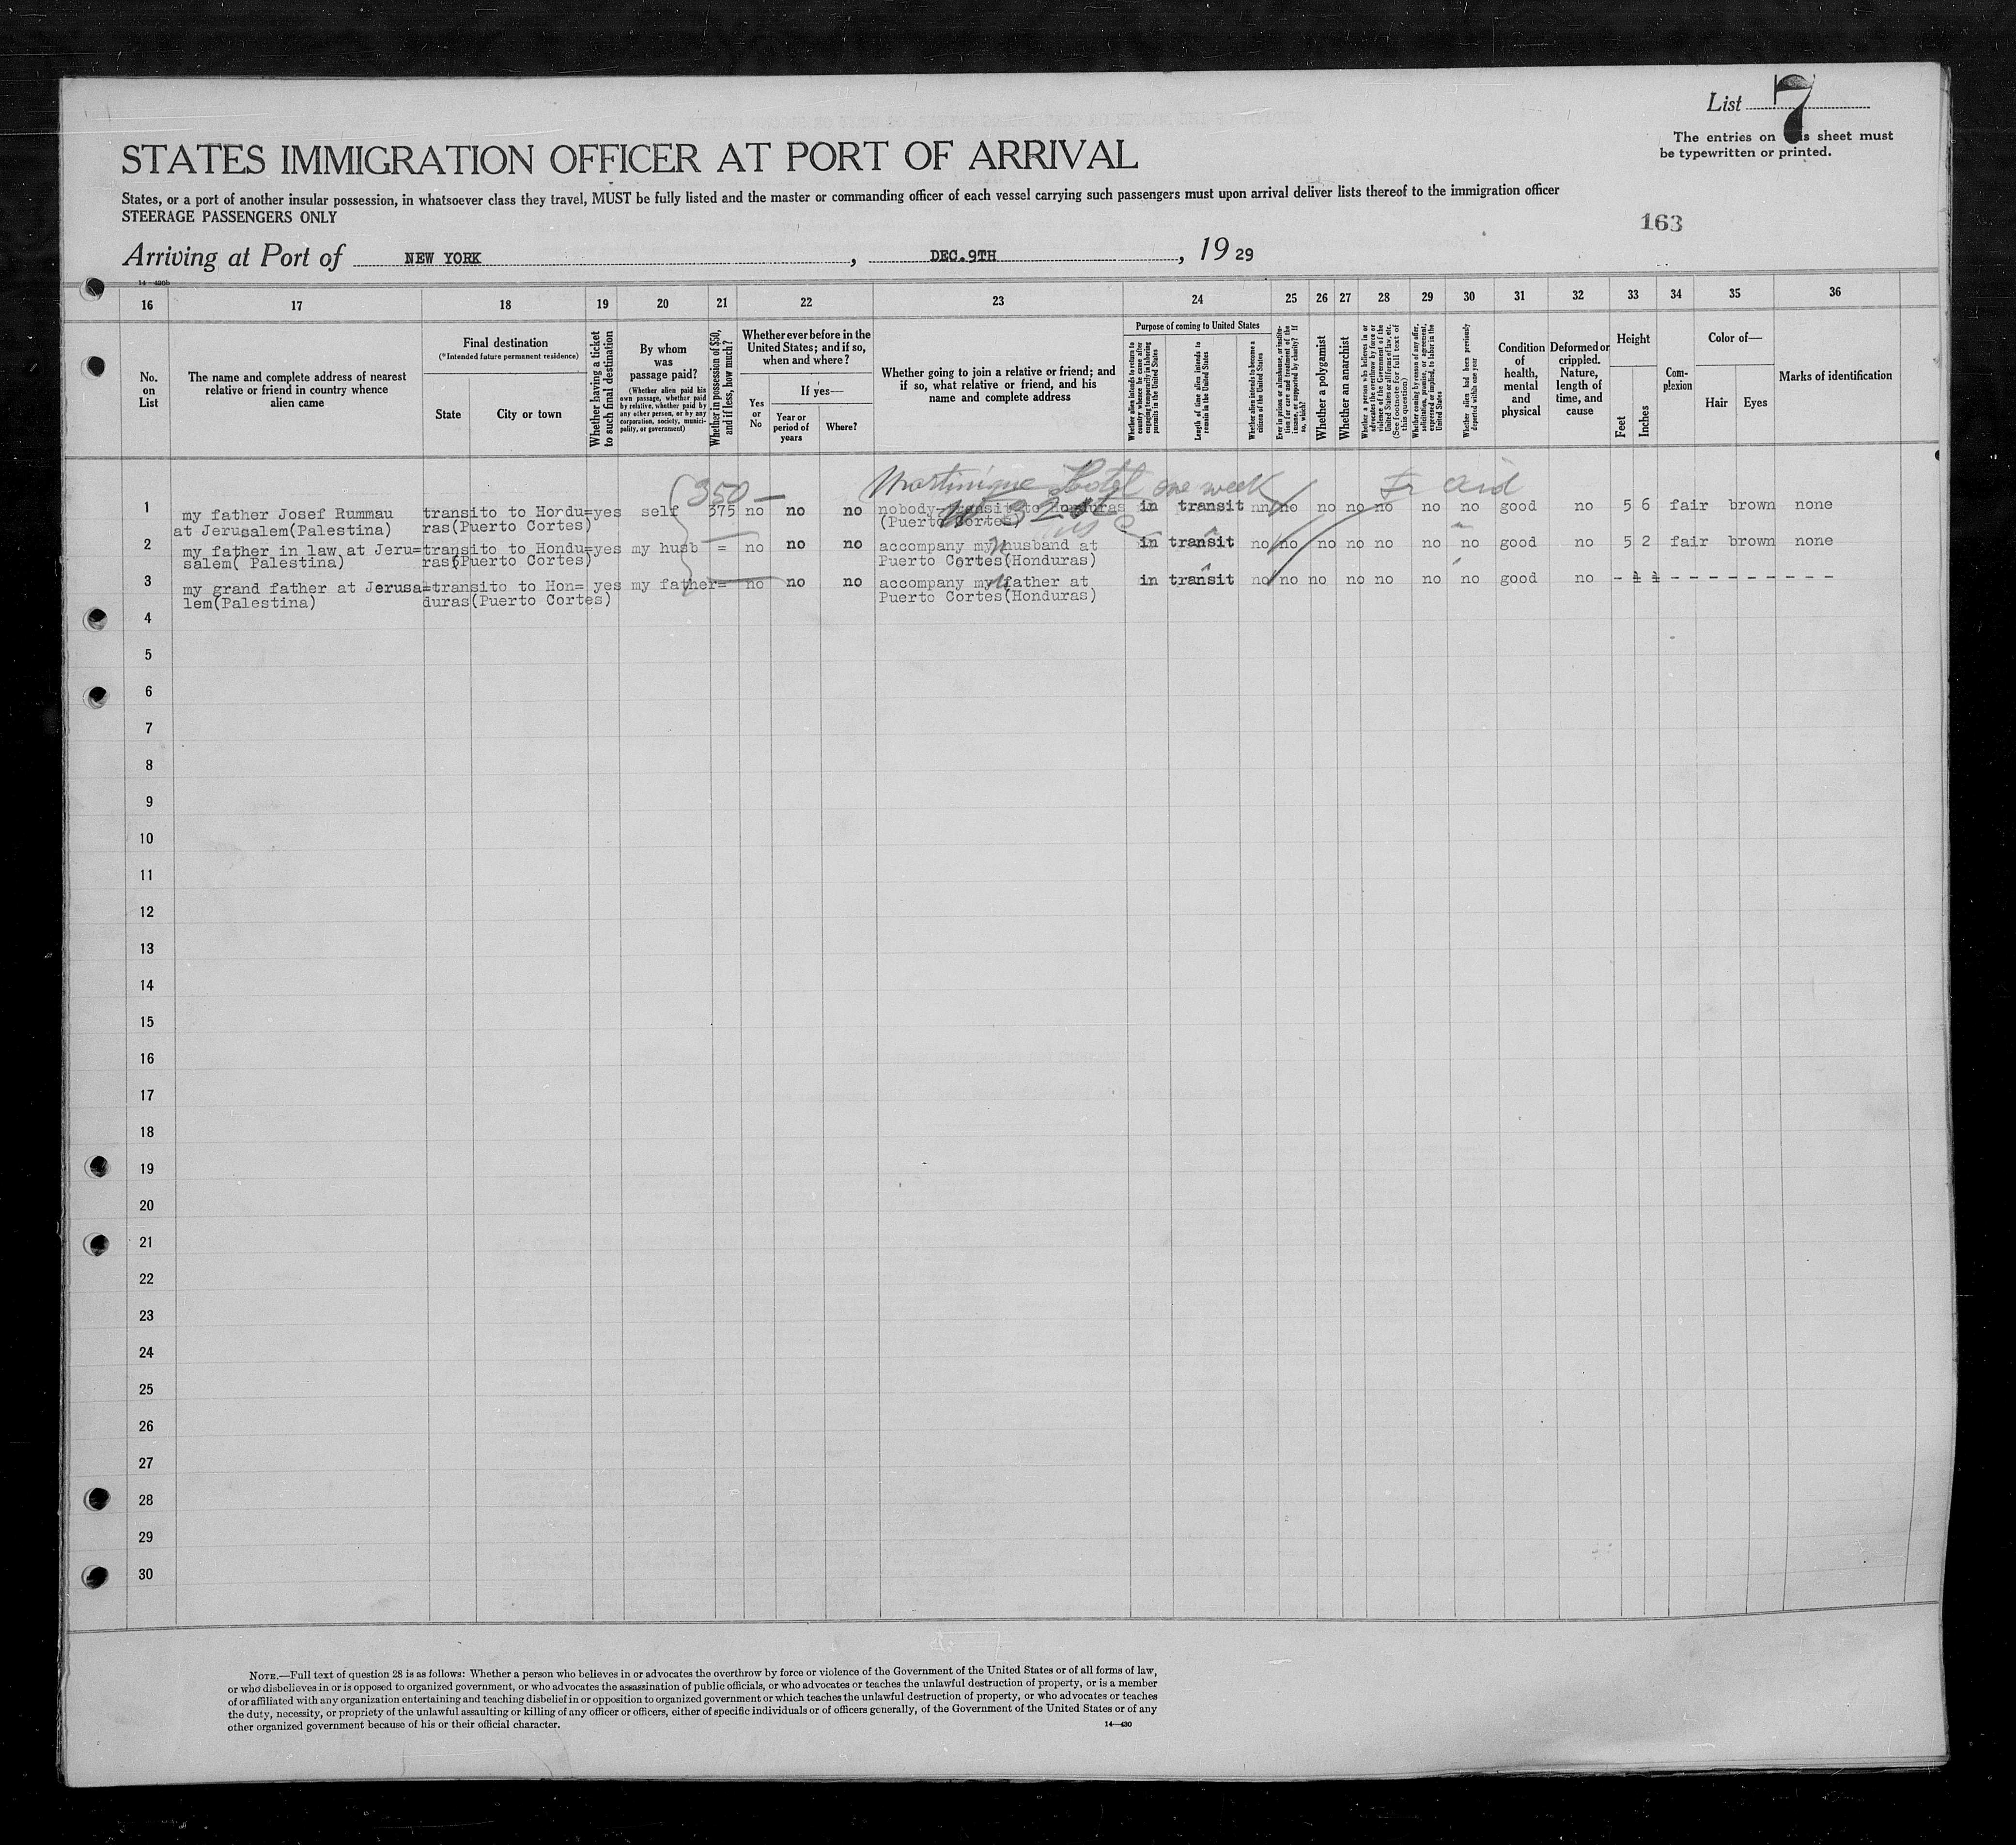 List 7
The entries on this sheet must
be typewritten or printed.
STATES IMMIGRATION OFFICER AT PORT OF ARRIVAL
States, or a port of another insular possession, in whatsoever class they travel, MUST be fully listed and the master or commanding officer of each vessel carrying such passengers must upon arrival deliver lists thereof to the immigration officer
STEERAGE PASSENGERS ONLY
163
Arriving at Port of NEW YORK, DEC.9TH, 19 29
14-430b
16 17 18 19 20 21 22 23 24 25 26 27 28 29 30 31 32 33 34 35 36
No.
on
List
The name and complete address of nearest
relative or friend in country whence
alien came
Final destination
(*Intended future permanent residence)
State
City or town
Whether having a ticket
to such final destination
By whom
was
passage paid?
(Whether alien paid his
own passage, whether paid
by relative, whether paid by
any other person, or by any
corporation, society, munici-
pality, or government)
Whether in possession of $50,
and if less, how much?
Whether ever before in the
United States; and if so,
when and where?
Yes
or
No
If yes—
Year or
period of
years
Where?
Whether going to join a relative or friend; and
if so, what relative or friend, and his
name and complete address
Purpose of coming to United States
Whether alien intends to return to
country whence he came after
engaging temporarily in laboring
pursuits in the United States
Length of time alien intends to
remain in the United States
Whether alien intends to become a
citizen of the United States
Ever in prison or almshouse, or institu-
tion for care and treatment of the
insane, or supported by charity? If
so, which?
Whether a polygamist
Whether an anarchist
Whether a person who believes in or
advocates the overthrow by force or
violence of the Government of the
United States or all forms of law, etc.
(See footnote for full text of
this question)
Whether coming by reason of any offer,
solicitation, promise, or agreement,
expressed or implied, to labor in the
United States
Whether alien had been previously
deported within one year
Condition
of
health,
mental
and
physical
Deformed or
crippled.
Nature,
length of
time, and
cause
Height
Feet
Inches
Com-
plexion
Color of—
Hair
Eyes
Marks of identification
350 — Martinique Hotel one week Fr aid
1 my father Josef Rummau transito to Hordu=yes self 375 no no no nobody-transito to Honduras in transit nn no no no no no no good no 5 6 fair brown none
at Jerusalem(Palestina) ras(Puerto Cortes) (Puerto Cortes) W 32 st
NYC
2 my father in law at Jeru=transito to Hondu=yes my husb = no no no accompany my husband at in transit no no no no no no no good no 5 2 fair brown none
salem( Palestina) ras(Puerto Cortes) Puerto Cortes(Honduras)
3 my grand father at Jerusa=transito to Hon= yes my father= no no no accompany my father at in transit no no no no no no no good no - 1 1 - - - - - - - - - -
lem(Palestina) duras(Puerto Cortes) Puerto Cortes(Honduras)
4
5
6
7
8
9
10
11
12
13
14
15
16
17
18
19
20
21
22
23
24
25
26
27
28
29
30
NOTE.—Full text of question 28 is as follows: Whether a person who believes in or advocates the overthrow by force or violence of the Government of the United States or of all forms of law,
or who disbelieves in or is opposed to organized government, or who advocates the assassination of public officials, or who advocates or teaches the unlawful destruction of property, or is a member
of or affiliated with any organization entertaining and teaching disbelief in or opposition to organized government or which teaches the unlawful destruction of property, or who advocates or teaches
the duty, necessity, or propriety of the unlawful assaulting or killing of any officer or officers, either of specific individuals or of officers generally, of the Government of the United States or of any
other organized government because of his or their official character.
14—430